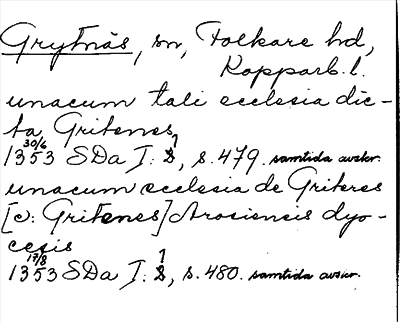 Grytnäs, sn, Folkare hd,
Kopparb. l.
unacum tali ecclesia dic-
ta Gritenes,
1353 30/6 SDa I: 1, s. 479. samtida avskr.
unacum ecclesia de Griteres
[ɔ: Gritenes] Arosiensis dyo-
cesis
1353 17/8 SDa I: 1, s. 480. samtida avskr.